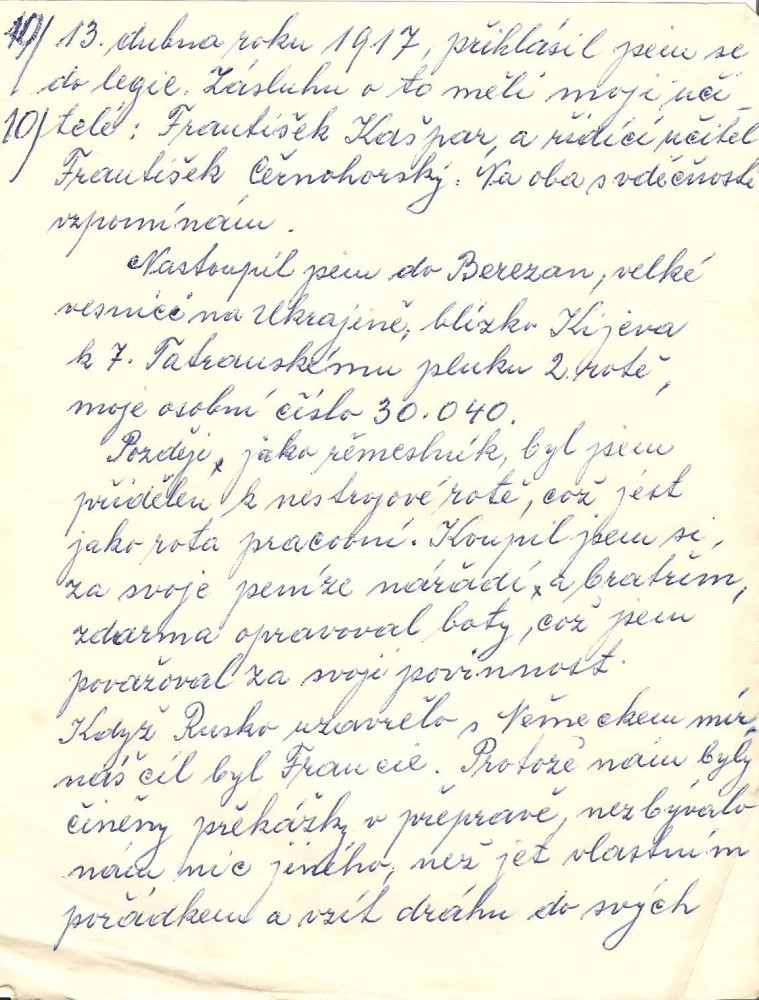 10/ 13. dubna roku 1917, přihlásil jsem se
do legie. Zásluhu o to měli moji uči_
10/ telé: František Kašpar, a řídící učitel
František Černohorský. Na oba s vděčností
vzpomínám.
Nastoupil jsem do Berezan, velké
vesnice na Ukrajině, blízko Kijeva
k 7. Tatranskému pluku 2. rotě,
moje osobní číslo 30.040.
Později, jako řěmeslník, byl jsem
přidělen k nestrojové rotě, což jest
jako rota pracovní. Koupil jsem si,
za svoje peníze nářadí, a bratřím,
zdarma opravoval boty, což jsem
považoval za svoji povinnost.
Když Rusko uzavřělo s Německem mír,
náš cíl byl Francie. Protože nám byly
činěny překážky v přepravě, nezbývalo
nám nic jiného, než jet vlastním
pořádkem a vzít dráhu do svých